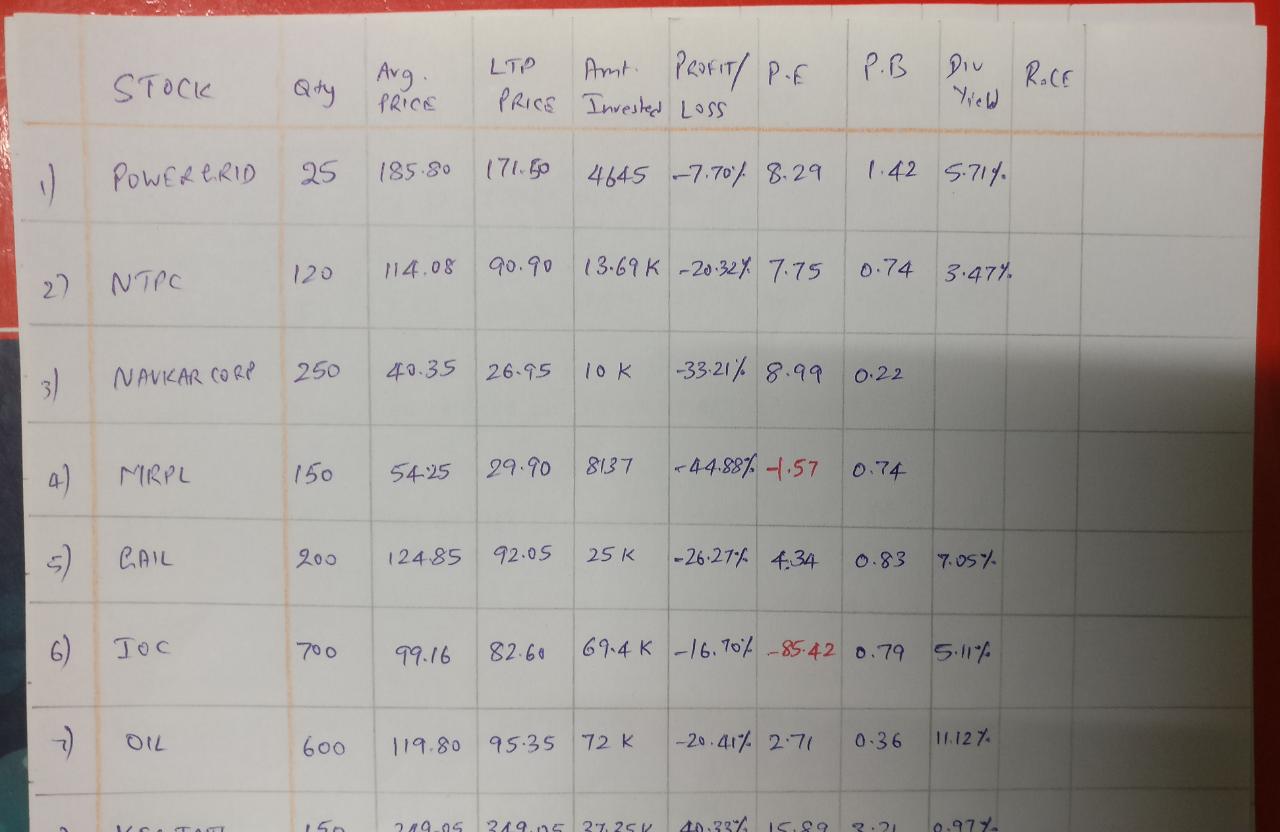 STOCK Qty Avg. PRICE LTP PRICE Amt. Invested PROFIT/ LOSS P.E P.B Div Yield RoCE
1) POWERGRID 25 185.80 171.50 4645 -7.70% 8.29 1.42 5.71%
2) NTPC 120 114.08 90.90 13.69 K -20.32% 7.75 0.74 3.47%
3) NAVKAR CORP 250 40.35 26.95 10 K -33.21% 8.99 0.22
4) MRPL 150 54.25 29.90 8137 -44.88% -1.57 0.74
5) GAIL 200 124.85 92.05 25 K -26.27% 4.34 0.83 7.05%
6) IOC 700 99.16 82.60 69.4 K -16.70% -85.42 0.79 5.11%
7) OIL 600 119.80 95.35 72 K -20.41% 2.71 0.36 11.12%
150 37.35K 40.33% 15.89 0.97%